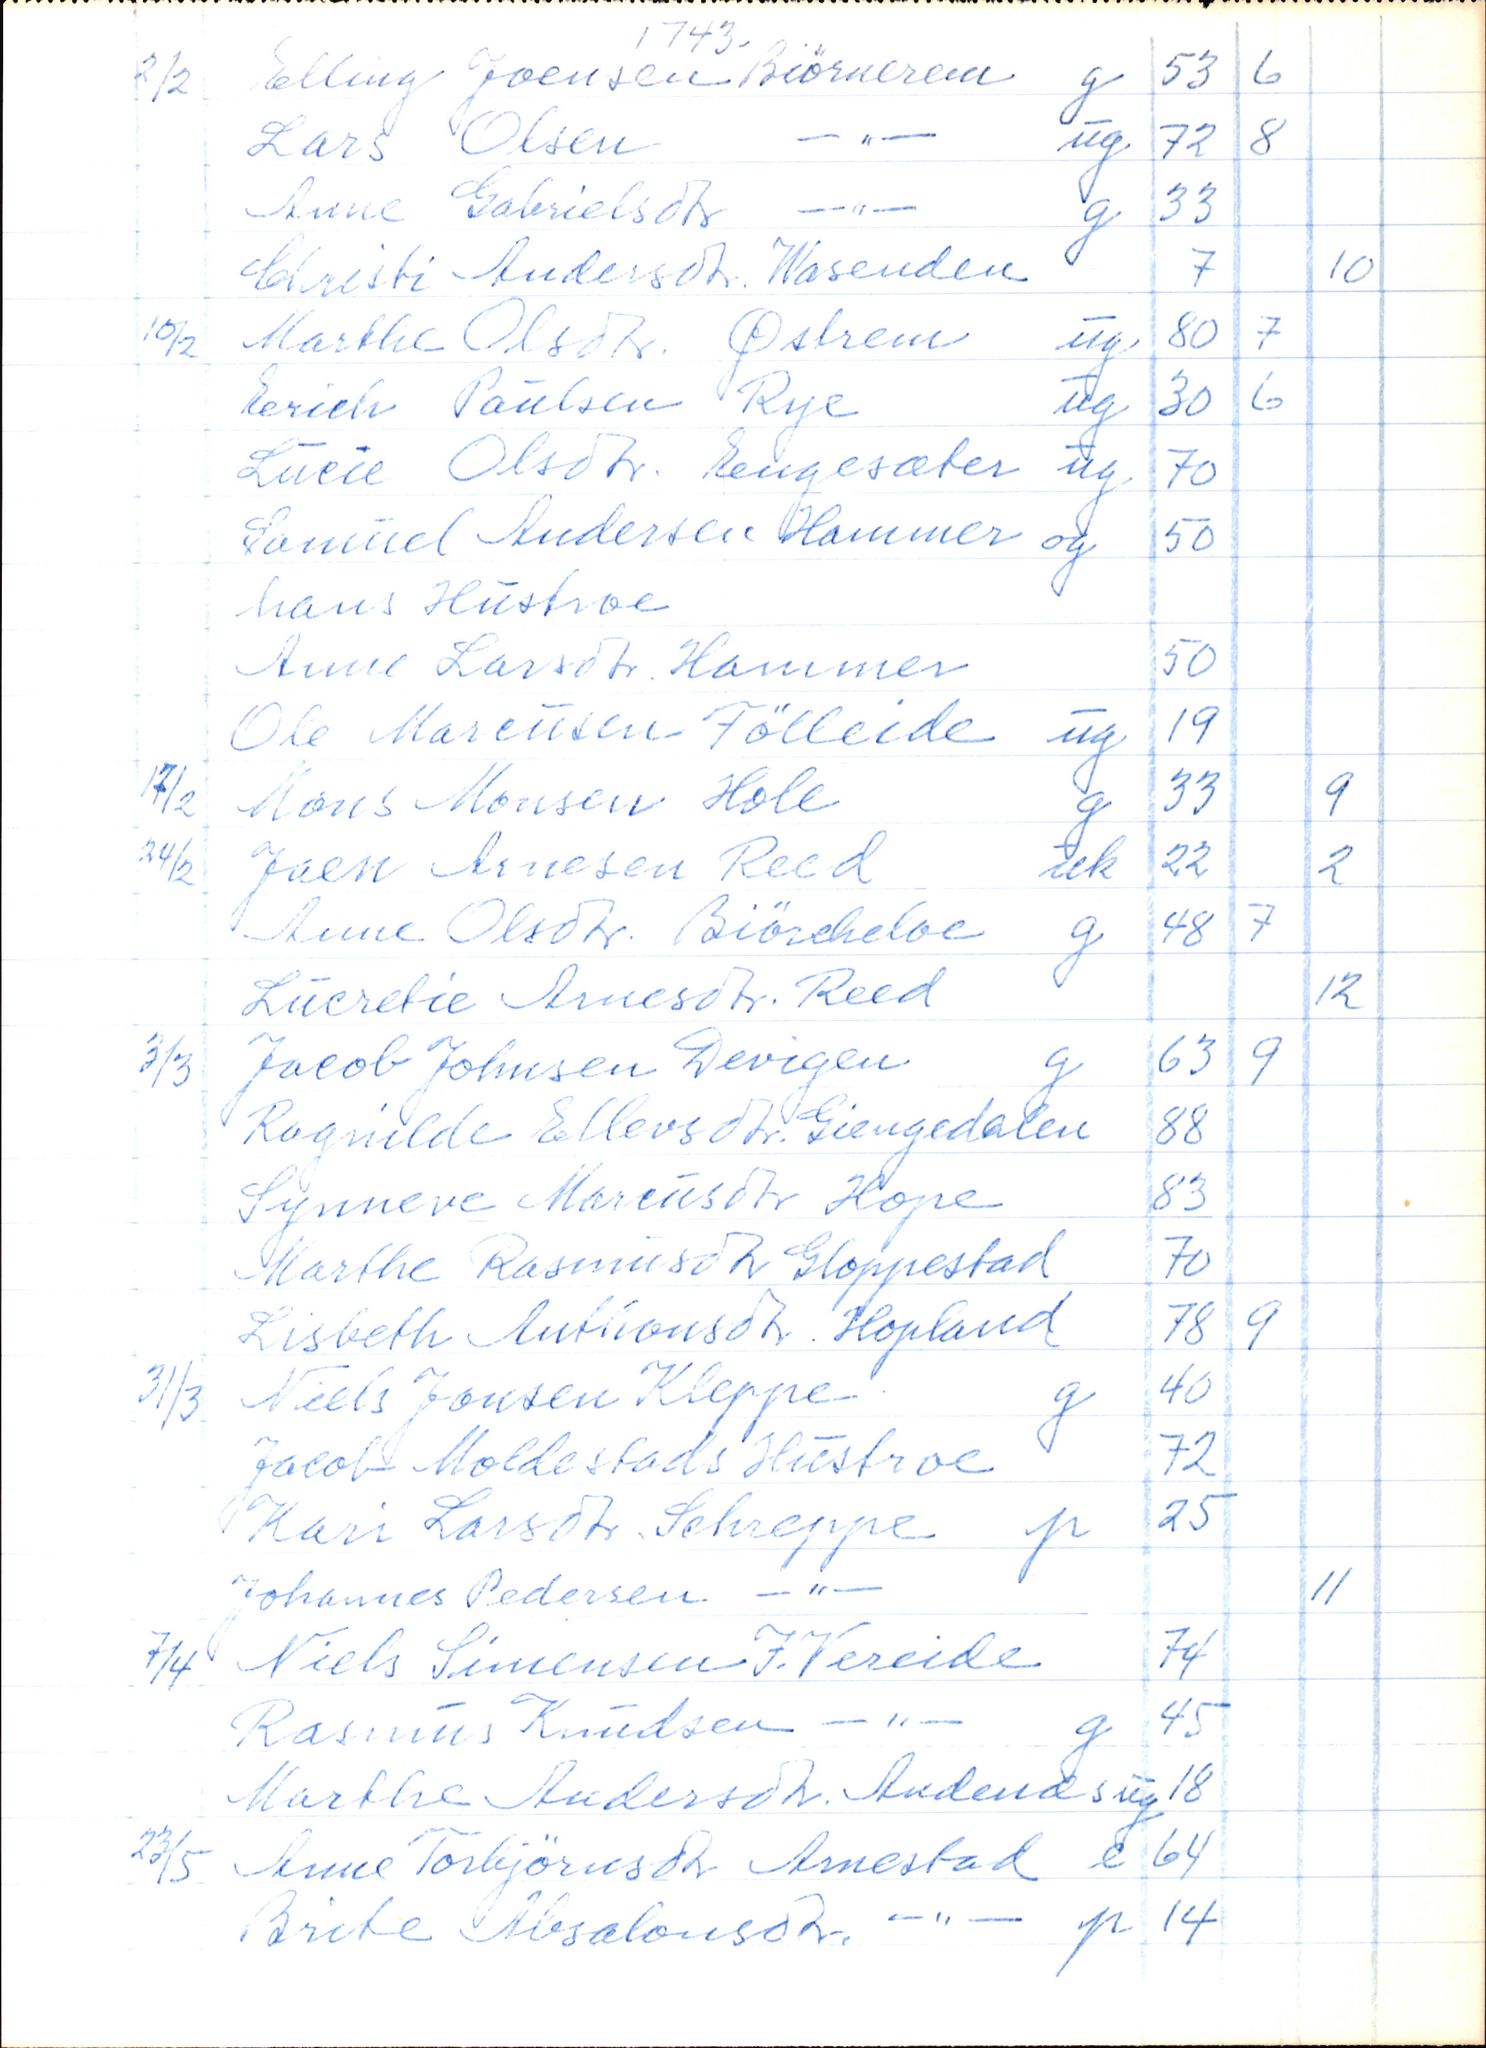 1743.
2/2 Elling Joensen Biörnerem g 53 6
Lars Olsen —"— ug 72 8
Anne Gabrielsdtr —"— g 33
Christi Andersdtr. Wasenden 7 10
10/2 Marthe Olsdtr. Østrem ug. 80 7
Erich Paulsen Rye ug 30 6
Lucie Olsdtr. Engesæter ug. 70
Samuel Andersen Hammer og 50
hans Hustroe
Anne Larsdtr. Hammer 50
Ole Marcusen Fölleide ug 19
17/2 Mons Monsen Hole g 33 9
24/2 Joen Arnesen Reed uk 22 2
Anne Olsdtr. Biörcheloe g 48 7
Lucretie Arnesdtr. Reed 12
3/3 Jacob Johnsen Devigen g 63 9
Ragnilde Ellevsdtr. Giengedalen 88
Synneve Marcusdtr Hope 83
Marthe Rasmusdtr Gloppestad 70
Lisbeth Anthonsdtr. Hopland 78 9
31/3 Niels Jonsen Kleppe g 40
Jacob Moldestads Hustroe 72
Kari Larsdtr. Schreppe p 25
Johannes Pedersen —"— 11
7/4 Niels Simensen J. Vereide 74
Rasmus Knudsen —"— g 45
Marthe Andersdtr. Andenæs ug 18
23/5 Anne Torbjörnsdtr Arnestad e 64
Brite Absalonsdtr. —"— p 14